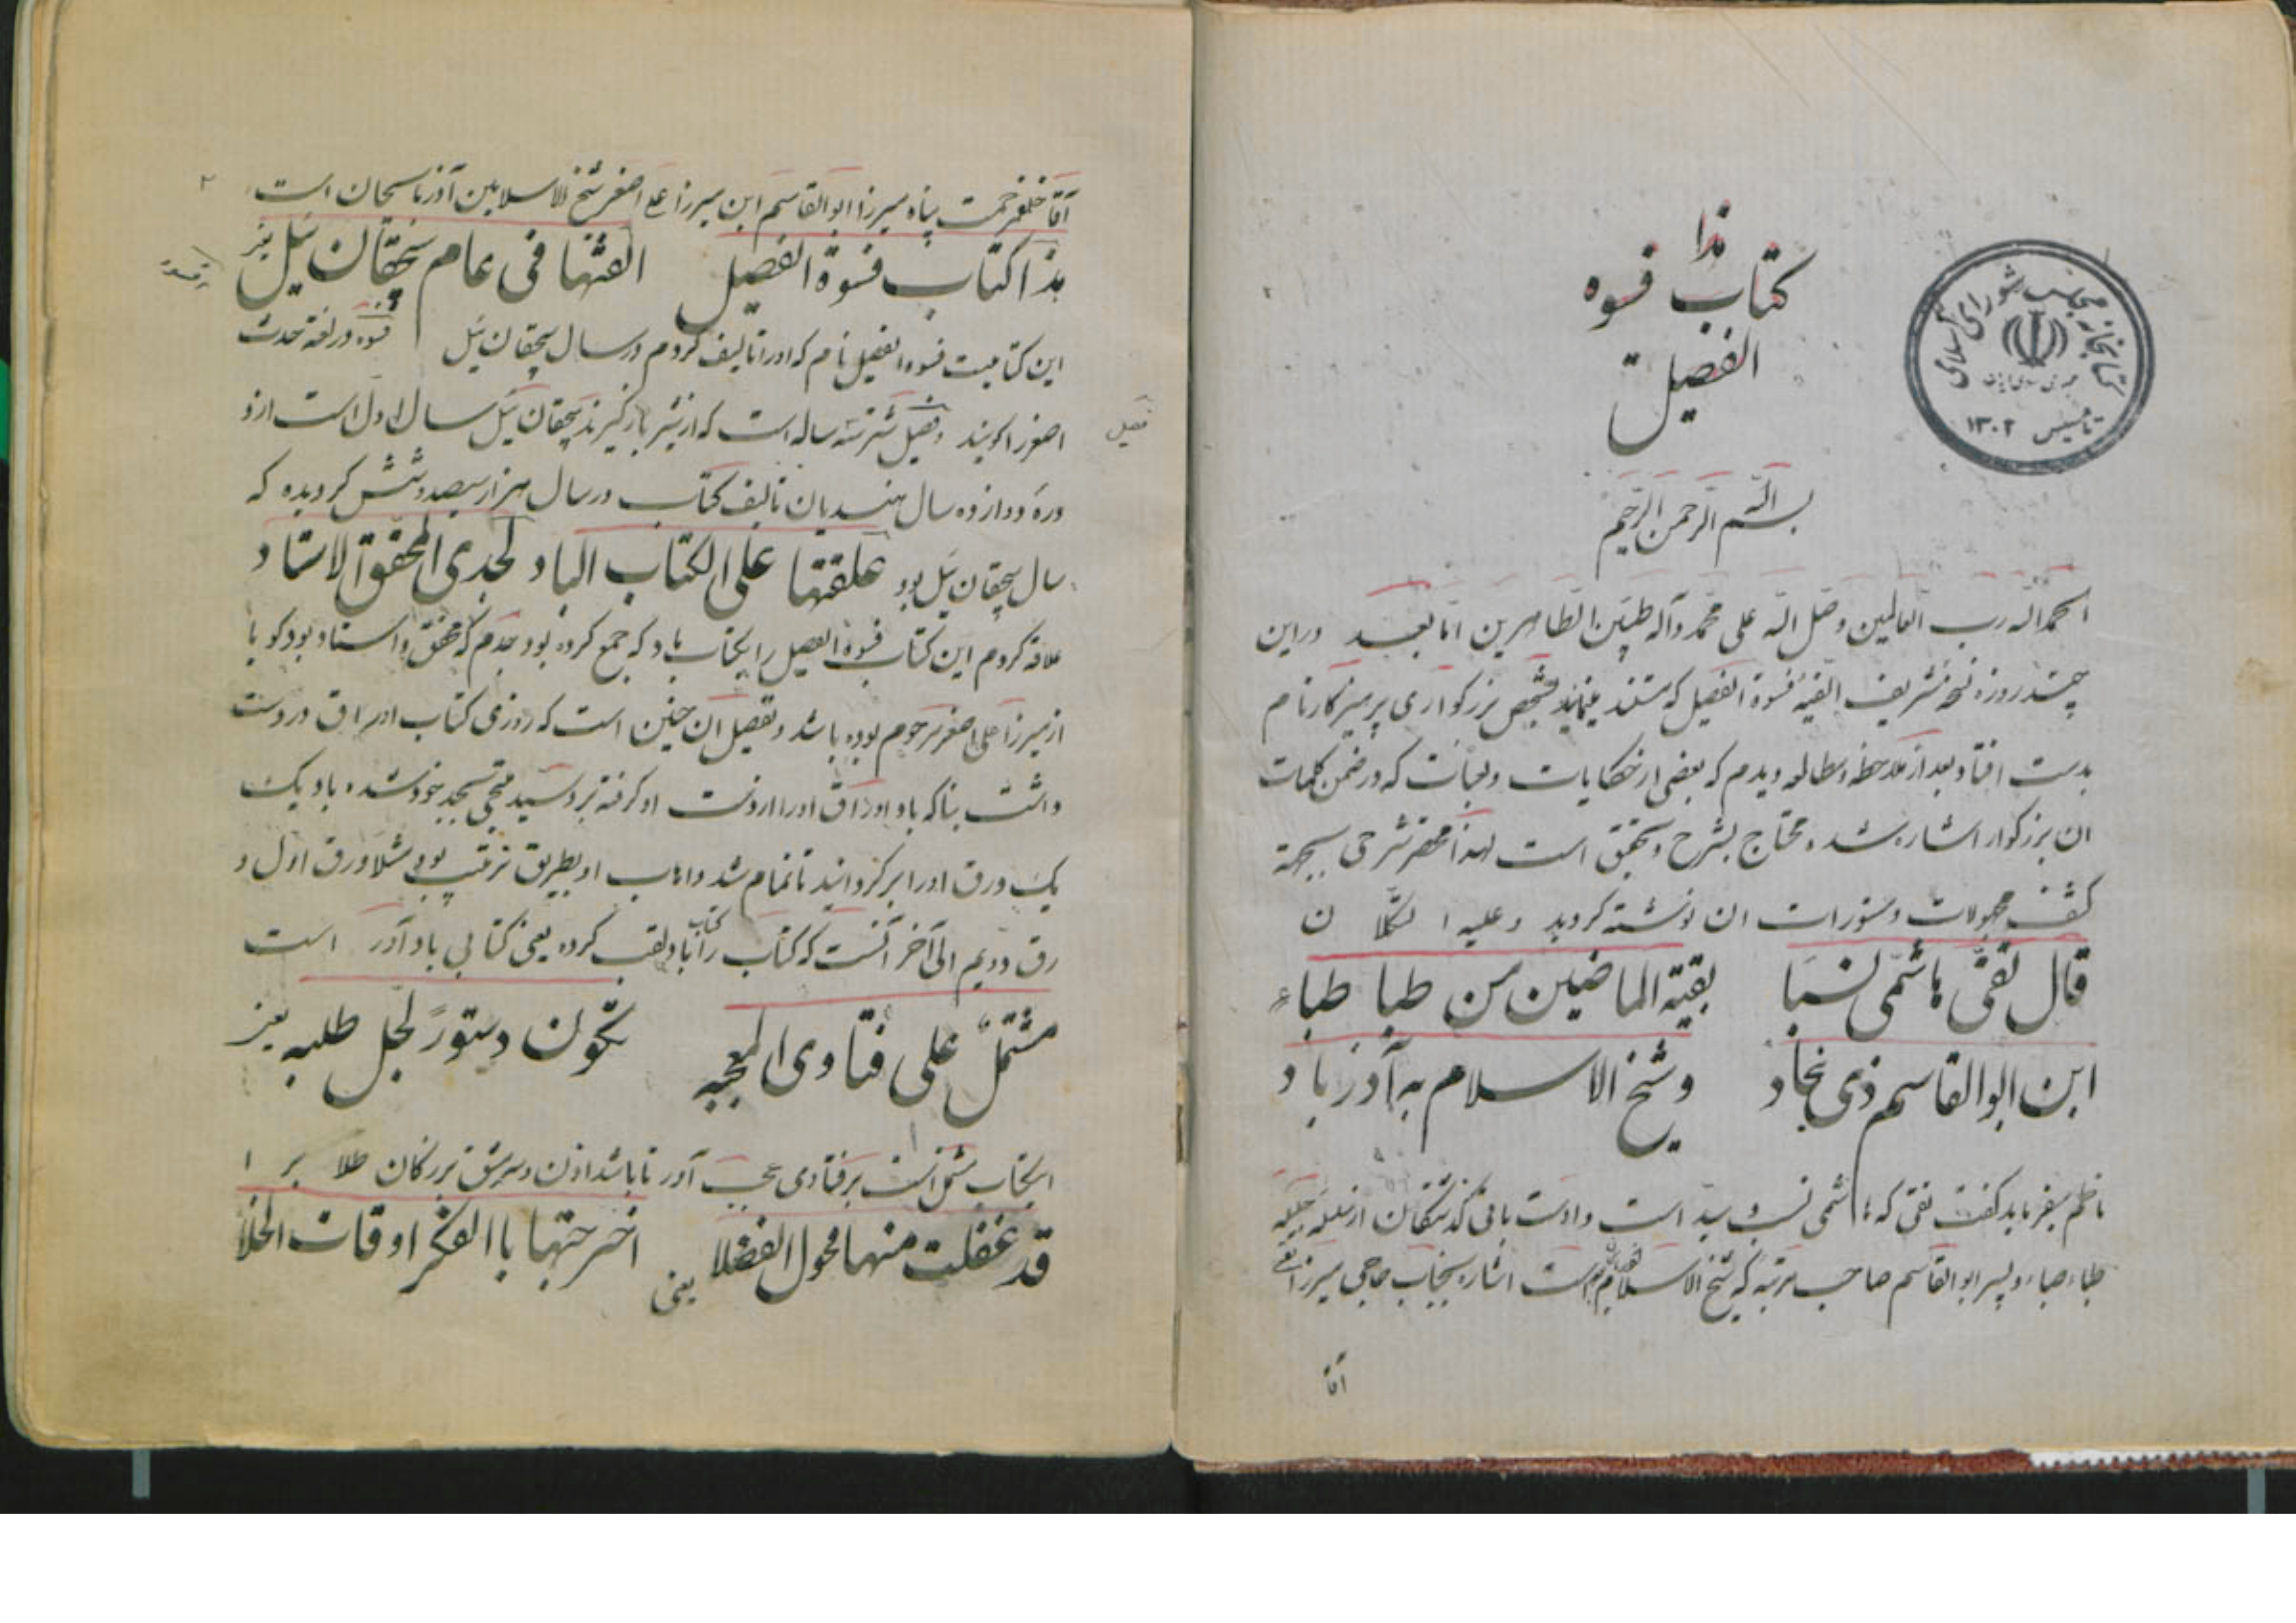 هذا
کتاب فسوه
الفصیل
کتابخانه مجلس شورای اسلامی
تاسیس ۱۳۰۲
بسم الله الرحمن الرحیم
الحمد الله رب العالمین و صل الله علی محمد و آله طیبین الطاهرین اما بعد در این
چند روزه نسخه شریف الفیه فسوة الفصیل که مستند بشخص بزرکواری پرهیزکار نام
بدست افتاد بعد از ملاحظه و مطالعه دیدم که بعضی از حکایات و لغات که در ضمن کلمات
ان بزرکوار اشاره شده محتاج بشرح و تحقیق است لهذا مختصر شرحی بجهة
کشف مجهولات و مستورات ان نوشته کردید و علیه التکلان
قال تقی هاشمی نسبا بقیة الماضین من طبا طباء
ابن ابوالقاسم ذی نجاد و شیخ الاسلام به آذرباد
ناظم میفرماید کفت تقی که هاشمی نسب و سید است و اوست باقی کذشتکان از سلسله جلیله
طباء طباء و پسر ابوالقاسم صاحب مرتبه که شیخ الاسلام است اشاره بجناب حاجی میرزا
آقا
۲
آقا خلف رحمت پناه میرزا ابوالقاسم ابن میرزا علی اصغر شیخ الاسلامین آذربایجان است
هذا کتاب فسوة الفصیل الفتها فی عام سیچقان ئیل یعنی
این کتابیست فسوه الفصیل نام که اورا تالیف کردم در سال سیچقان ئیل فسوه در لغة حدث
فصیل
اصغر را کویند و فصیل شتر سه ساله است که از شیر باز کیرند سیچقان ئیل سال اول است از
دوره دوازده سال هندیان تالیف کتاب در سال هزار سیصد و شش کردیده که
سال سیچقان ئیل بود علقتها علی الکتاب الباد لجدی المحقق الاستاد
علاقه کردم این کتاب فسوة الفصیل را بکتاب باد که جمع کرده بود جدم که محقق و استاد بود کویا
از میرزا علی اصغر مرحوم بوده باشد و تفصیل ان چنین است که روزی کتاب اوراق در دست
داشت بناکه باد اوراق اورا از دست او کرفته برد سید ملتجی بجد خود شده باد یک
یک ورق اورا برکردانید تا تمام شد و ایاب او بطریق ترتیب بود مثلا ورق اول و
رق دویم الی آخر آنست که کتاب را کتاب باد لقب کرده یعنی کتابی باد آور است
مشتمل علی فتاوی المعجبه تکون دستورا لجل طلبه یعنی
اینکتاب مشتمل است بر فتاوی عجب آور تا باشد اذن و سرمشق بزرکان طلاب را
قد غفلت منها فحول الفضلا اخرجتها باالفکر اوقات الخلا
یعنی